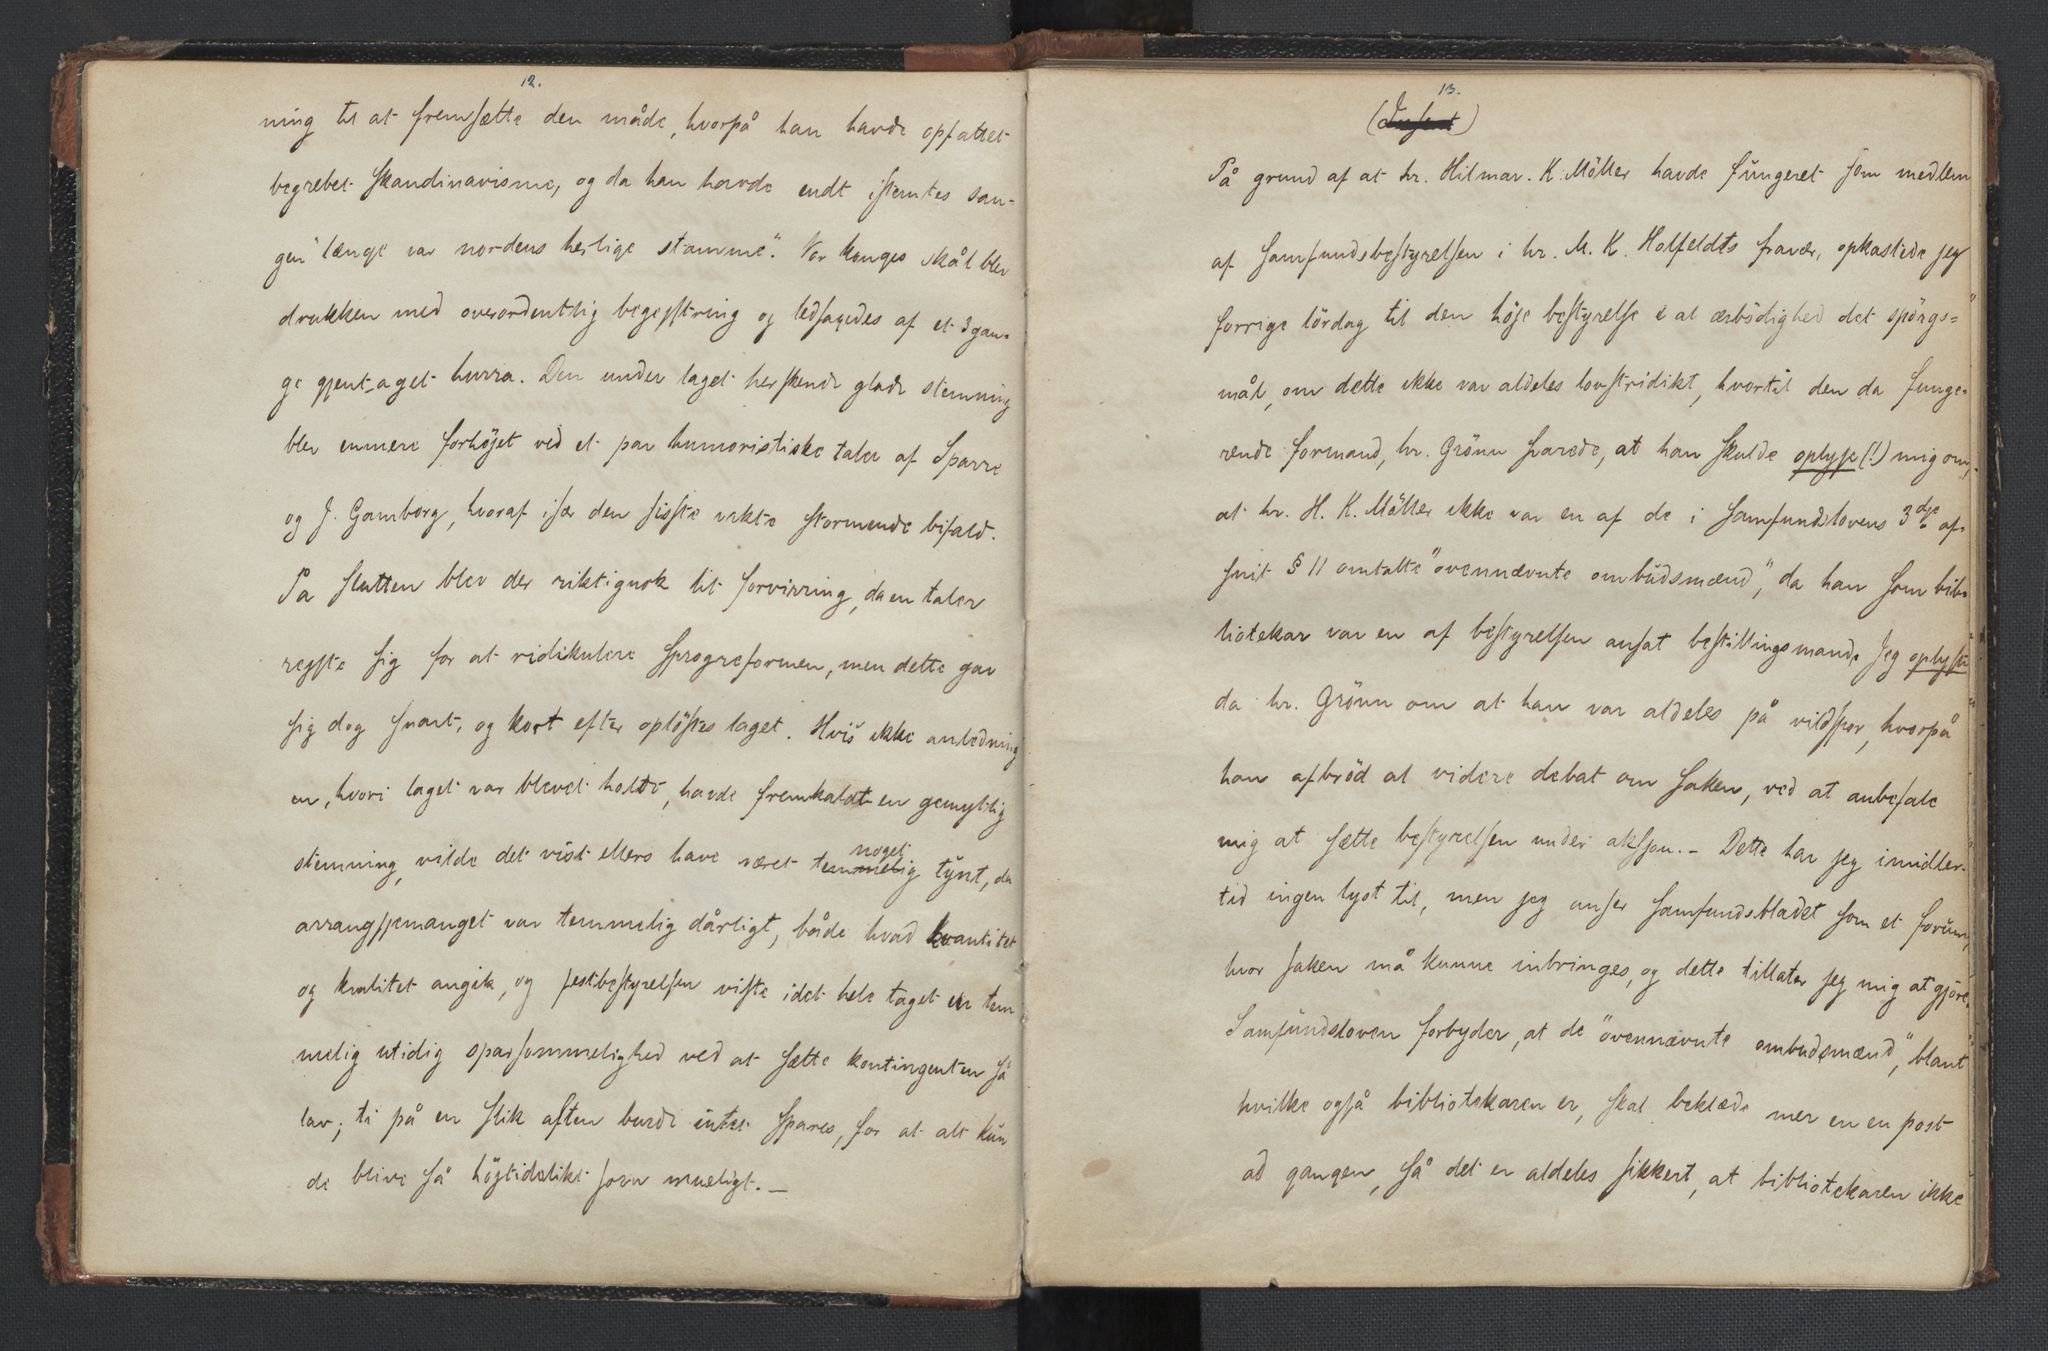 12.
ning til at fremsætte den måde, hvorpå han havde opfattet
begrebet skandinavisme, og da han havde endt istemtes san-
gen "længe var nordens herlige stamme". Vor konges skål blev
drukken med overordentlig begejstring og ledsagedes af et 3 gan-
ge gjentaget hurra. Den under laget herskende glade stemning
blev enmere forhöjet ved et par humoristiske taler af Sparre
og J. Gamborg, hvoraf især den sisste vakte stormende bifald.
På slutten blev der riktignok lit forvirring, da en taler
rejste sig for at ridikulere sprogreformen, men dette gav
sig dog snart, og kort efter oplöstes laget. Hvis ikke anledning
en, hvori laget var blevet holdt, havde fremkaldt en gemytlig
stemning, vilde det vist ellers have været temmelig noget tynt, da
arrangsjemanget var temmelig dårligt, både hvad kvantitet
og kvalitet angik, og festbestyrelsen viste i det hele taget en tem
melig utidig sparsommelighed ved at sætte kontingenten så
lav; ti på en slik aften burde intet spares, for at alt kun
de blive så höjtidelikt som mueligt. —
13.
(Insent)
På grund af at hr. Hilmar. K. Möller havde fungeret som medlem
af samfundsbestyrelsen i hr. M. K. Holfeldts fravær, opkastede jeg
forrige lördag til den höje bestyrelse i al ærbödighed det spörgs=
mål, om dette ikke var aldeles lovstridikt, hvortil den da funge-
rende formand, hr. Grönn svarede, at han skulde oplyse (!) mig om,
at hr. H. K. Möller ikke var en af de i samfundslovens 3dje af-
snit § 11 omtalte "ovennævnte ombudsmænd", da han som bib-
liotekar var en af bestyrelsen ansat bestillingsmand. Jeg oplyste
da hr. Grönn om at han var aldeles på vildspor, hvorpå
han afbröd al videre debat om saken, ved at anbefale
mig at sætte bestyrelsen under aksjon. — Dette har jeg imidler-
tid ingen lyst til, men jeg anser samfundsbladet som et forum,
hvor saken må kunne inbringes, og dette tillater jeg mig at gjöre.
Samfundsloven forbyder, at de "ovennævnte ombudsmænd", blant
hvilke også bibliotekaren er, skal beklæde mer en en post
ad gangen, så det er aldeles sikkert, at bibliotekaren ikke